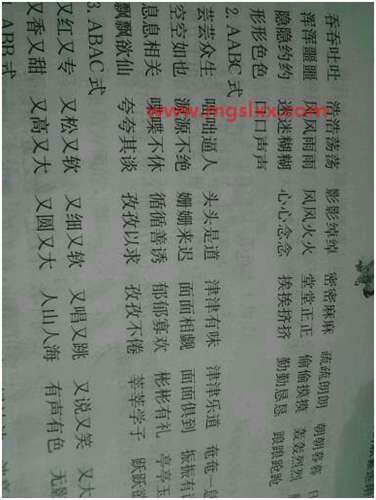 吞吞吐吐 浩浩荡荡 影影绰绰 密密麻麻 疏疏朗朗 朝朝暮暮
浑浑噩噩 风风雨雨 风风火火 堂堂正正 偷偷摸摸 轰轰烈烈
隐隐约约 迷迷糊糊 心心念念 挨挨挤挤 勤勤恳恳 踉踉跄跄
形形色色 口口声声
2. AABC 式
芸芸众生 咄咄逼人 头头是道 津津有味 津津乐道 奄奄一
空空如也 源源不绝 姗姗来迟 面面相觑 面面俱到 振振有
息息相关 喋喋不休 循循善诱 郁郁寡欢 彬彬有礼 亭亭玉
飘飘欲仙 夸夸其谈 孜孜以求 孜孜不倦 莘莘学子 跃跃欲
3. ABAC 式
又红又专 又松又软 又细又软 又唱又跳 又说又笑 又大
又香又甜 又高又大 又圆又大 人山人海 有声有色 无
4. ABB 式
www.mgslxx.com